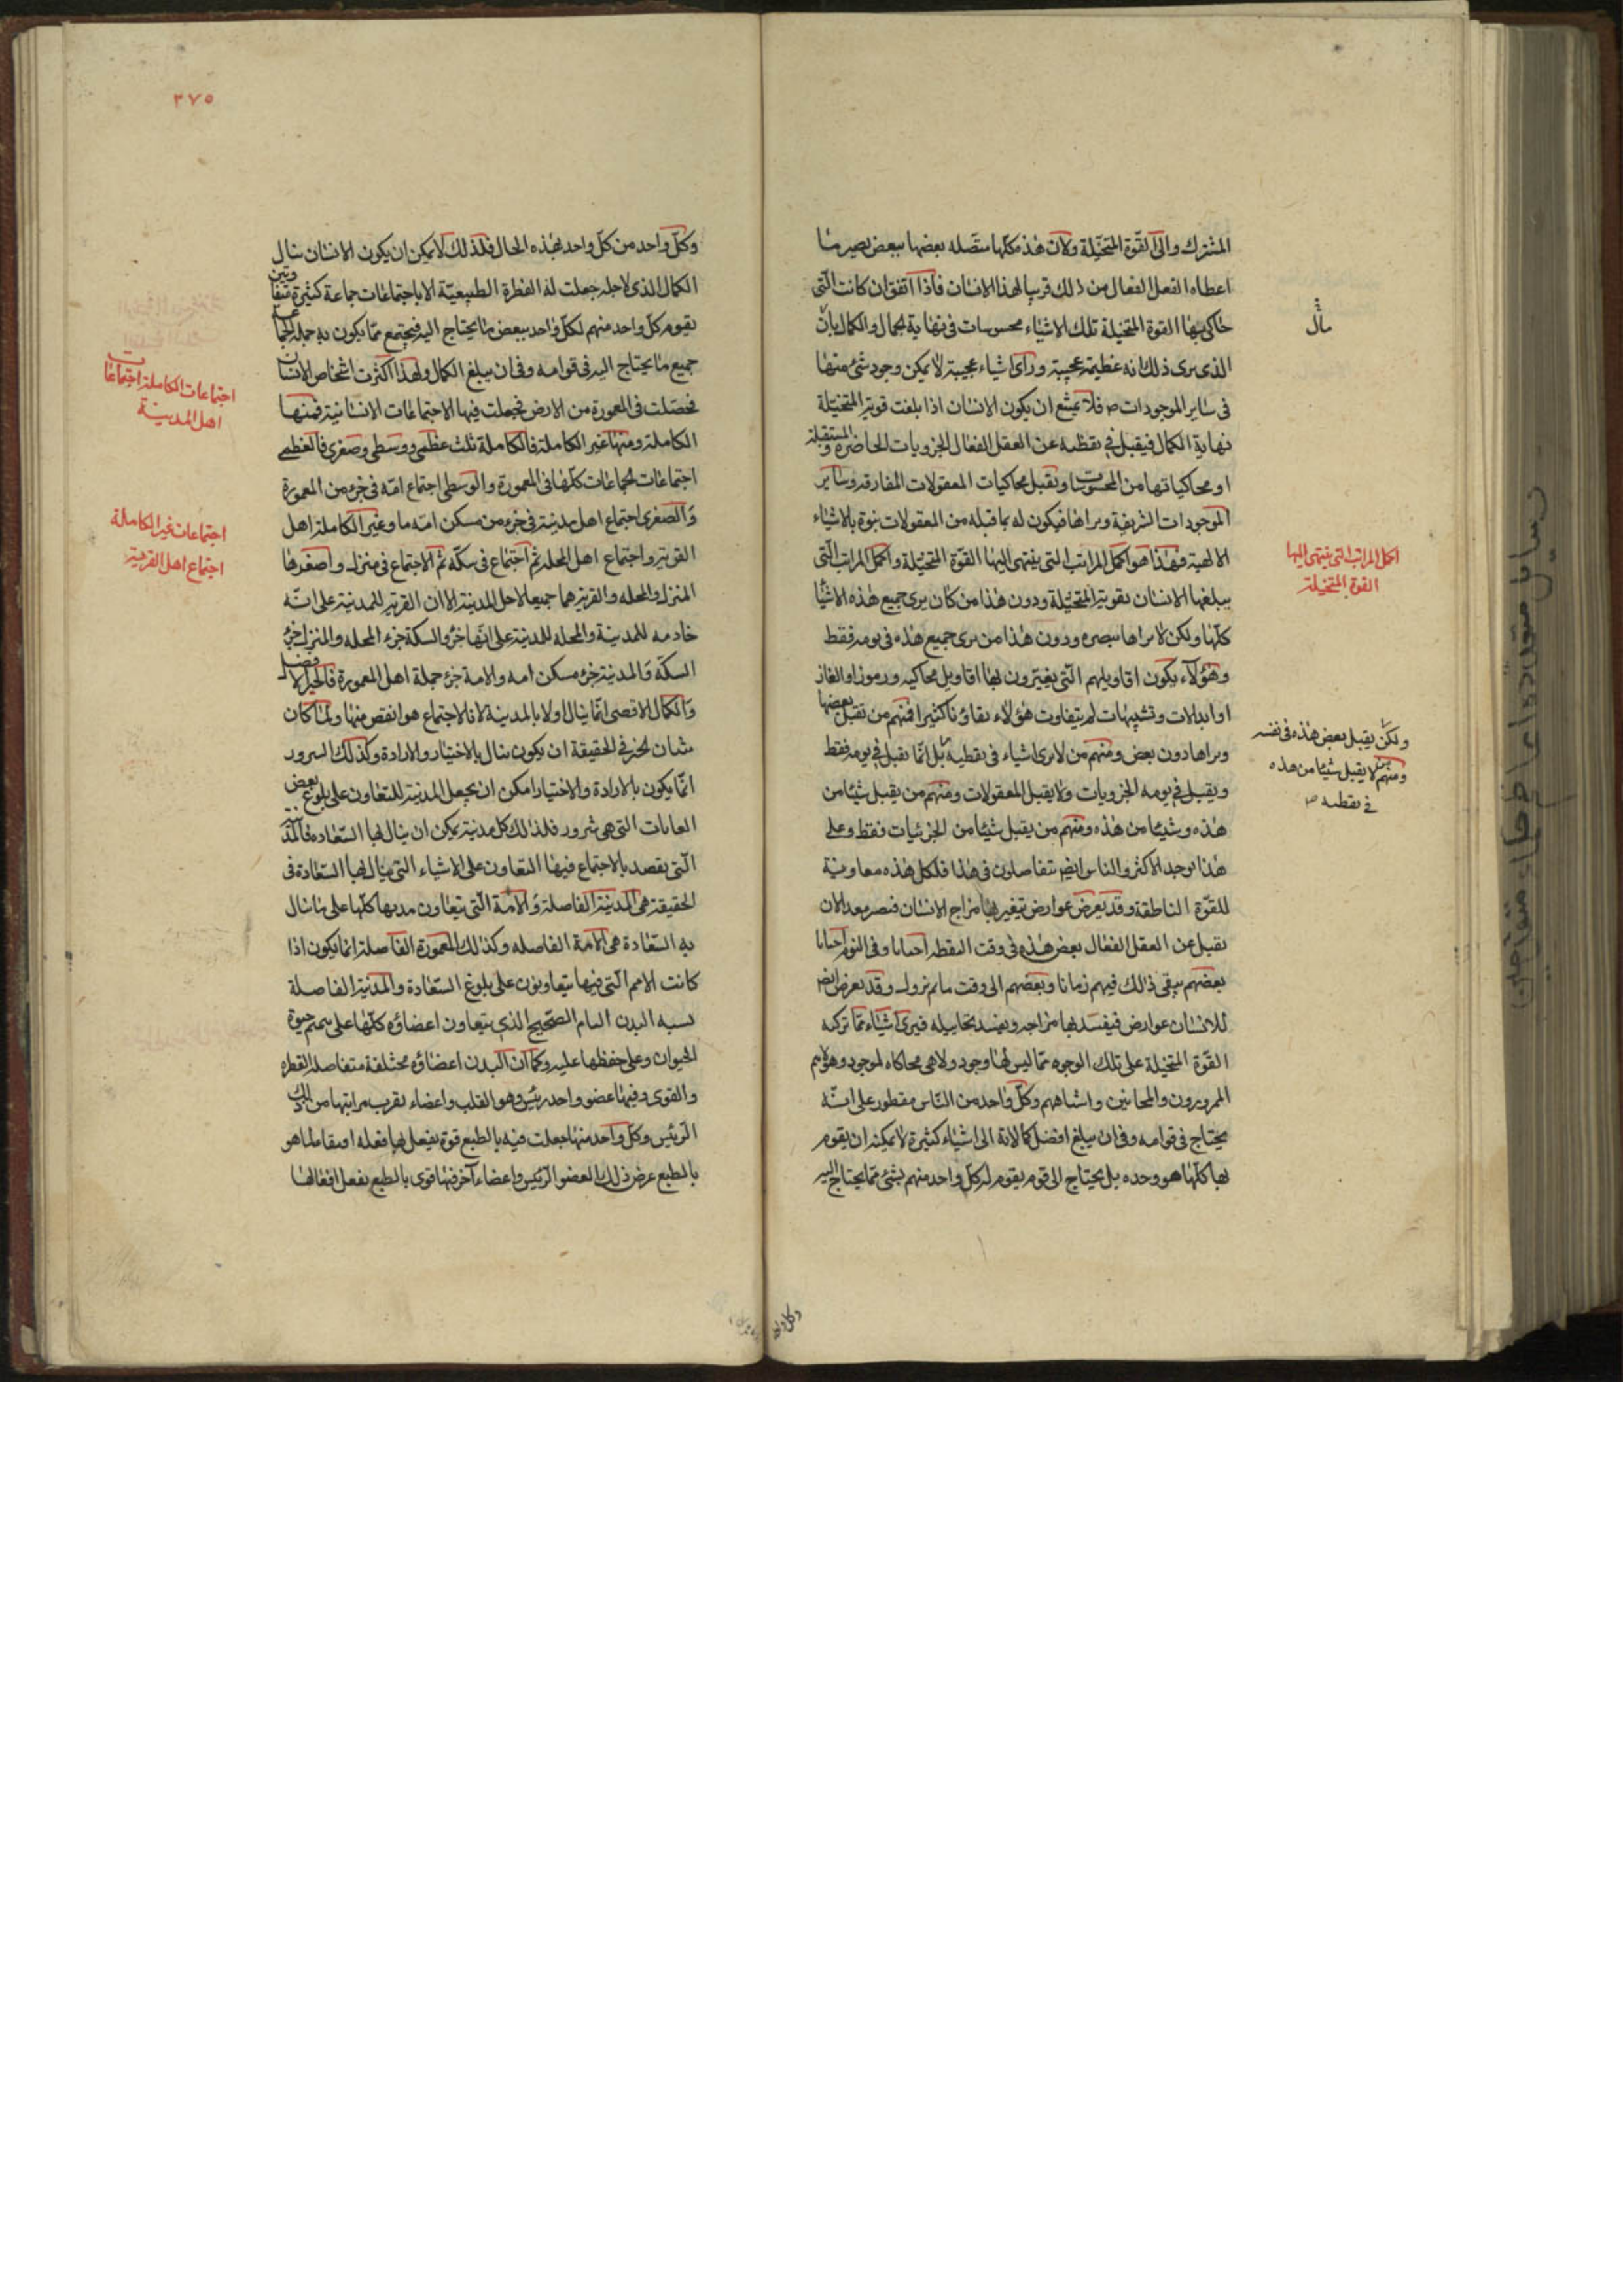 المشترك والى القوة المتخيلة ولان هذه كلها متصله بعضها ببعض يصير ما
اعطاه الفعل الفعال من ذلك قريبا لهذا الانسان فاذا اتفق ان كانت التى
حاكى بها القوة المتخيلة تلك الاشياء محسوسات فى نهاية الجمال والكمال بان
الذى يرى ذلك انه عظيمة عجيبة وراى اشياء عجيبة لا يمكن وجود شئ منها
فى ساير الموجودات فلا يمتنع ان يكون الانسان اذا بلغت قوته المتخيلة
نهاية الكمال فيقبل فى يقظته عن العقل الفعال الجزويات الحاضرة والمستقبلة
او محاكياتها من المحسوسات ويقبل محاكيات المعقولات المفارقه وساير
الموجودات الشريفة ويراها فيكون له بما قبله من المعقولات نبوة بالاشياء
الالهية فهذا هو اكمل المراتب التى ينتهى اليها القوة المتخيلة واكمل المراتب التى
يبلغها الانسان بقوته المتخيلة ودون هذا من كان يرى جميع هذه الاشيا
كلها ولكن لا يراها ببصره ودون هذا من يرى جميع هذه فى يومه فقط
وهؤلاء يكون اقاويلهم التى يعبرون بها اقاويل محاكيه ورموزا والغاز
او ابدالات وتشبيهات ثم يتفاوت هؤلاء تفاوتا كثيرا فمنهم من يقبل بعضها
ويراها دون بعض ومنهم من لا يرى اشياء فى يقظته بل انما يقبل فى يومه فقط
ويقبل فى يومه الجزويات ولا يقبل المعقولات ومنهم من يقبل شيئا من
هذه وشيئا من هذه ومنهم من يقبل شيئا من الجزئيات فقط وعلى
هذا يوجد الاكثر والناس ايضا يتفاضلون فى هذا فكل هذه معاونة
للقوة الناطقة وقد يعرض عوارض يتغير بها مزاج الانسان فيصير معد الان
يقبل عن العقل الفعال بعض هذه فى وقت اليقظه احيانا وفى النوم احيانا
بعضهم يبقى ذالك فيهم زمانا وبعضهم الى وقت ما ثم يزول وقد يعرض ايضا
للانسان عوارض فيفسد بها مزاجه ويفسد تخاييله فيرى اشياء مما تركبه
القوة المتخيلة على تلك الوجوه مما ليس لها وجود ولا هى محاكاه لموجود وهؤلاء هم
الممرورون والمجانين واشباههم وكل واحد من الناس مفطور على انه
يحتاج فى قوامه وفى ان يبلغ افضل كمالاته الى اشياء كثيرة لا يمكنه ان يقوم
بها كلها هو وحده بل يحتاج الى قوم يقوم له كل واحد منهم بشئ مما يحتاج اليه
مال
اكمل المراتب التى ينتهى اليها
القوة المتخيلة
ولكن يقبل بعض هذه فى نفسه
ومنهم من لا يقبل شيئا من هذه
فى يقظته
وكل واحد
٢٧٥
وكل واحد من كل واحد بهذه الحال فلذلك لا يمكن ان يكون الانسان ينال
الكمال الذى لاجله جعلت له الفطرة الطبيعية الا باجتماعات جماعة كثيرة متعاونين
يقوم كل واحد منهم لكل واحد ببعض ما يحتاج اليه فيجتمع مما يكون به جمله الجماعة
جميع ما يحتاج اليه فى قوامه وفى ان يبلغ الكمال ولهذا اكثرت اشخاص الانسان
فحصلت فى المعمورة من الارض فجعلت فيها الاجتماعات الانسانية فمنها
الكاملة ومنها غير الكاملة فالكاملة ثلث عظمى ووسطى وصغرى فالعظمى
اجتماعات الجماعات كلها فى المعمورة والوسطى اجتماع امة فى جزء من المعمورة
والصغرى اجتماع اهل مدينة فى جزء من مسكن امة ما وغير الكاملة اهل
القرية واجتماع اهل المحلة ثم اجتماع فى سكة ثم الاجتماع فى منزل واصغرها
المنزل والمحله والقرية هما جميعا لاهل المدينة الا ان القرية للمدينة على انه
خادمه للمدينة والمحله للمدينة على انها جزء والسكة جزء المحله والمنزل جزء
السكة والمدينة جزء مسكن امه والامة جزء جملة اهل المعمورة فالخير الافضل
والكمال الاقصى انما ينال اولا بالمدينة لا بالاجتماع هو انقص منها ولما كان
شان الخير فى الحقيقة ان يكون ينال بالاختيار والارادة وكذلك الشرور
انما يكون بالارادة والاختيار امكن ان يجعل المدينة للتعاون على بلوغ بعض
الغايات التى هى شرور فلذلك كل مدينة يمكن ان ينال بها السعاده فالمدينة
التى يقصد بالاجتماع فيها التعاون على الاشياء التى ينال بها السعادة فى
الحقيقة هى المدينة الفاضلة والامة التى يتعاون مدنها كلها على ما ينال
به السعادة هى الامة الفاضله وكذلك المعمورة الفاضلة انما يكون اذا
كانت الامم التى فيها يتعاونون على بلوغ السعادة والمدينة الفاضلة
تشبه البدن التام الصحيح الذى يتعاون اعضاؤه كلها على تتميم حيوة
الحيوان وعلى حفظها عليه وكما ان البدن اعضاؤه مختلفة متفاضلة الفطره
والقوى وفيها عضو واحد رئيس وهو القلب واعضاء يقرب مراتبها من ذلك
الرئيس وكل واحد منها جعلت فيه بالطبع قوة يفعل بها فعله ابتغاء لما هو
بالطبع غرض ذلك العضو الرئيس واعضاء آخر فيها قوى بالطبع يفعل افعالها
اجتماعات الكاملة اجتماعات
اهل المدينة
اجتماعات غير الكاملة
اجتماع اهل القرية